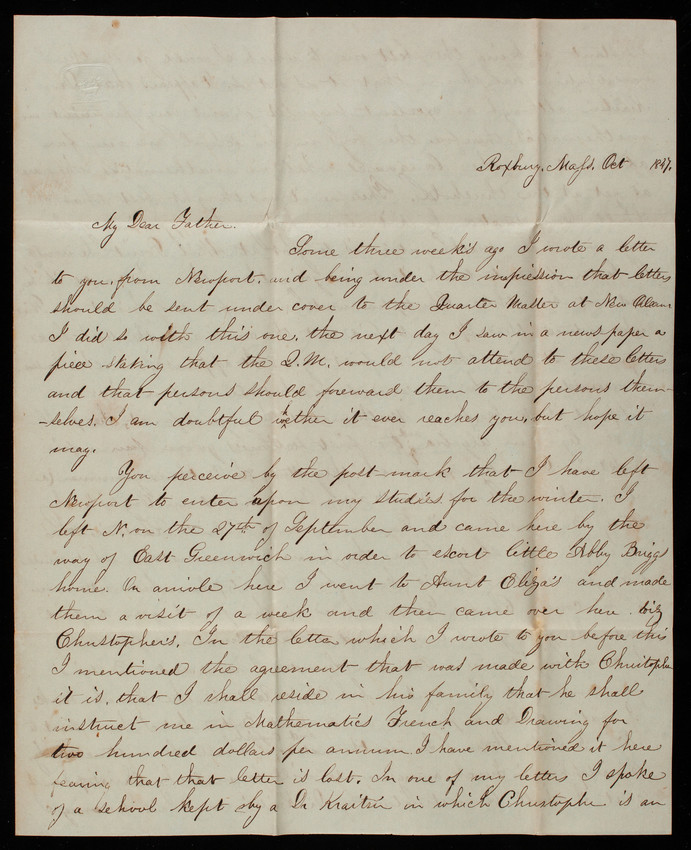 Roxbury. Mass. Oct 1847.
My Dear Father.
Some three week's ago I wrote a letter
to you, from Newport, and being under the impression that letters
should be sent under cover to the Quarter Master at New Oleans
I did so with this one, the next day I saw in a news paper a
piece stating that the Q.M. would not attend to these letters
and that persons should forward them to the persons them-
-selves. I am doubtful wether it ever reaches you, but hope it
may.
You perceive by the post-mark that I have left
Newport to enter upon my studies for the winter. I
left N. on the 27th of September and came here by the
way of East Greenwich in order to escort little Abby Briggs
home. On arivle here I went to Aunt Eliza's and made
them a visit of a week and then came over here. viz
Christopher's. In the letter which I wrote to you before this
I mentioned the agreement that was made with Christopher
it is, that I shall reside in his family that he shall
instruct me in Mathematics French and Drawing for
two hundred dollars per annum. I have mentioned it here
fearing that that letter is lost. In one of my letters I spoke
of a school kept by a Dr Kraitsir in which Christopher is an